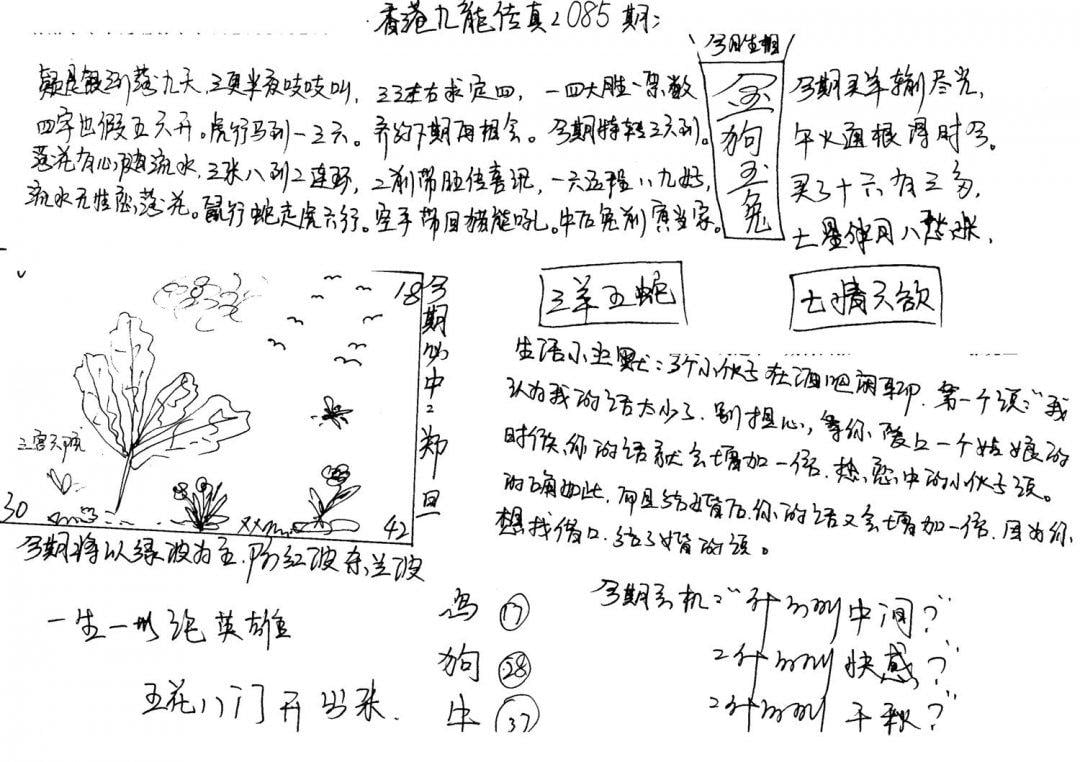 香港九龍传真2085期:
疑是银河落九天,三更半夜吱吱叫,
四字也假五六开。虎行马到一三六。
落花有心随流水,三张八到2连环,
流水无情恋落花。鼠行蛇走虎六行。
三三左右求定四,一四大胜一架数
齐约下期再相会。今期特转三六到。
2前带胆传喜讯,一六五程八九好,
空手带回猪能吼。牛后兔前寅当家。
今日生相
金
狗
玉
兔
今期买羊输尽光,
午火通根得时令。
买了十六有三多,
七星伴月八
三羊五蛇
七情六欲
18
30
42
三宫六院
今期必中2期旦
今期将以绿波为主,防红波杀兰波
生活小幽默:3个小伙子在酒吧闲聊.第一个说:"我
认为我的话太少了.别担心,等你爱上一个姑娘的
时候,你的话就会增加一倍.热恋中的小伙子说。
的确如此.而且结婚后,你的话又会增加一倍.因为你
想找借口.结了婚的说。
一生一世论英雄
五花八门开出来.
鸡 17
狗 28
牛 37
今期玄机:"
中间?"
快感?"
千秋?"